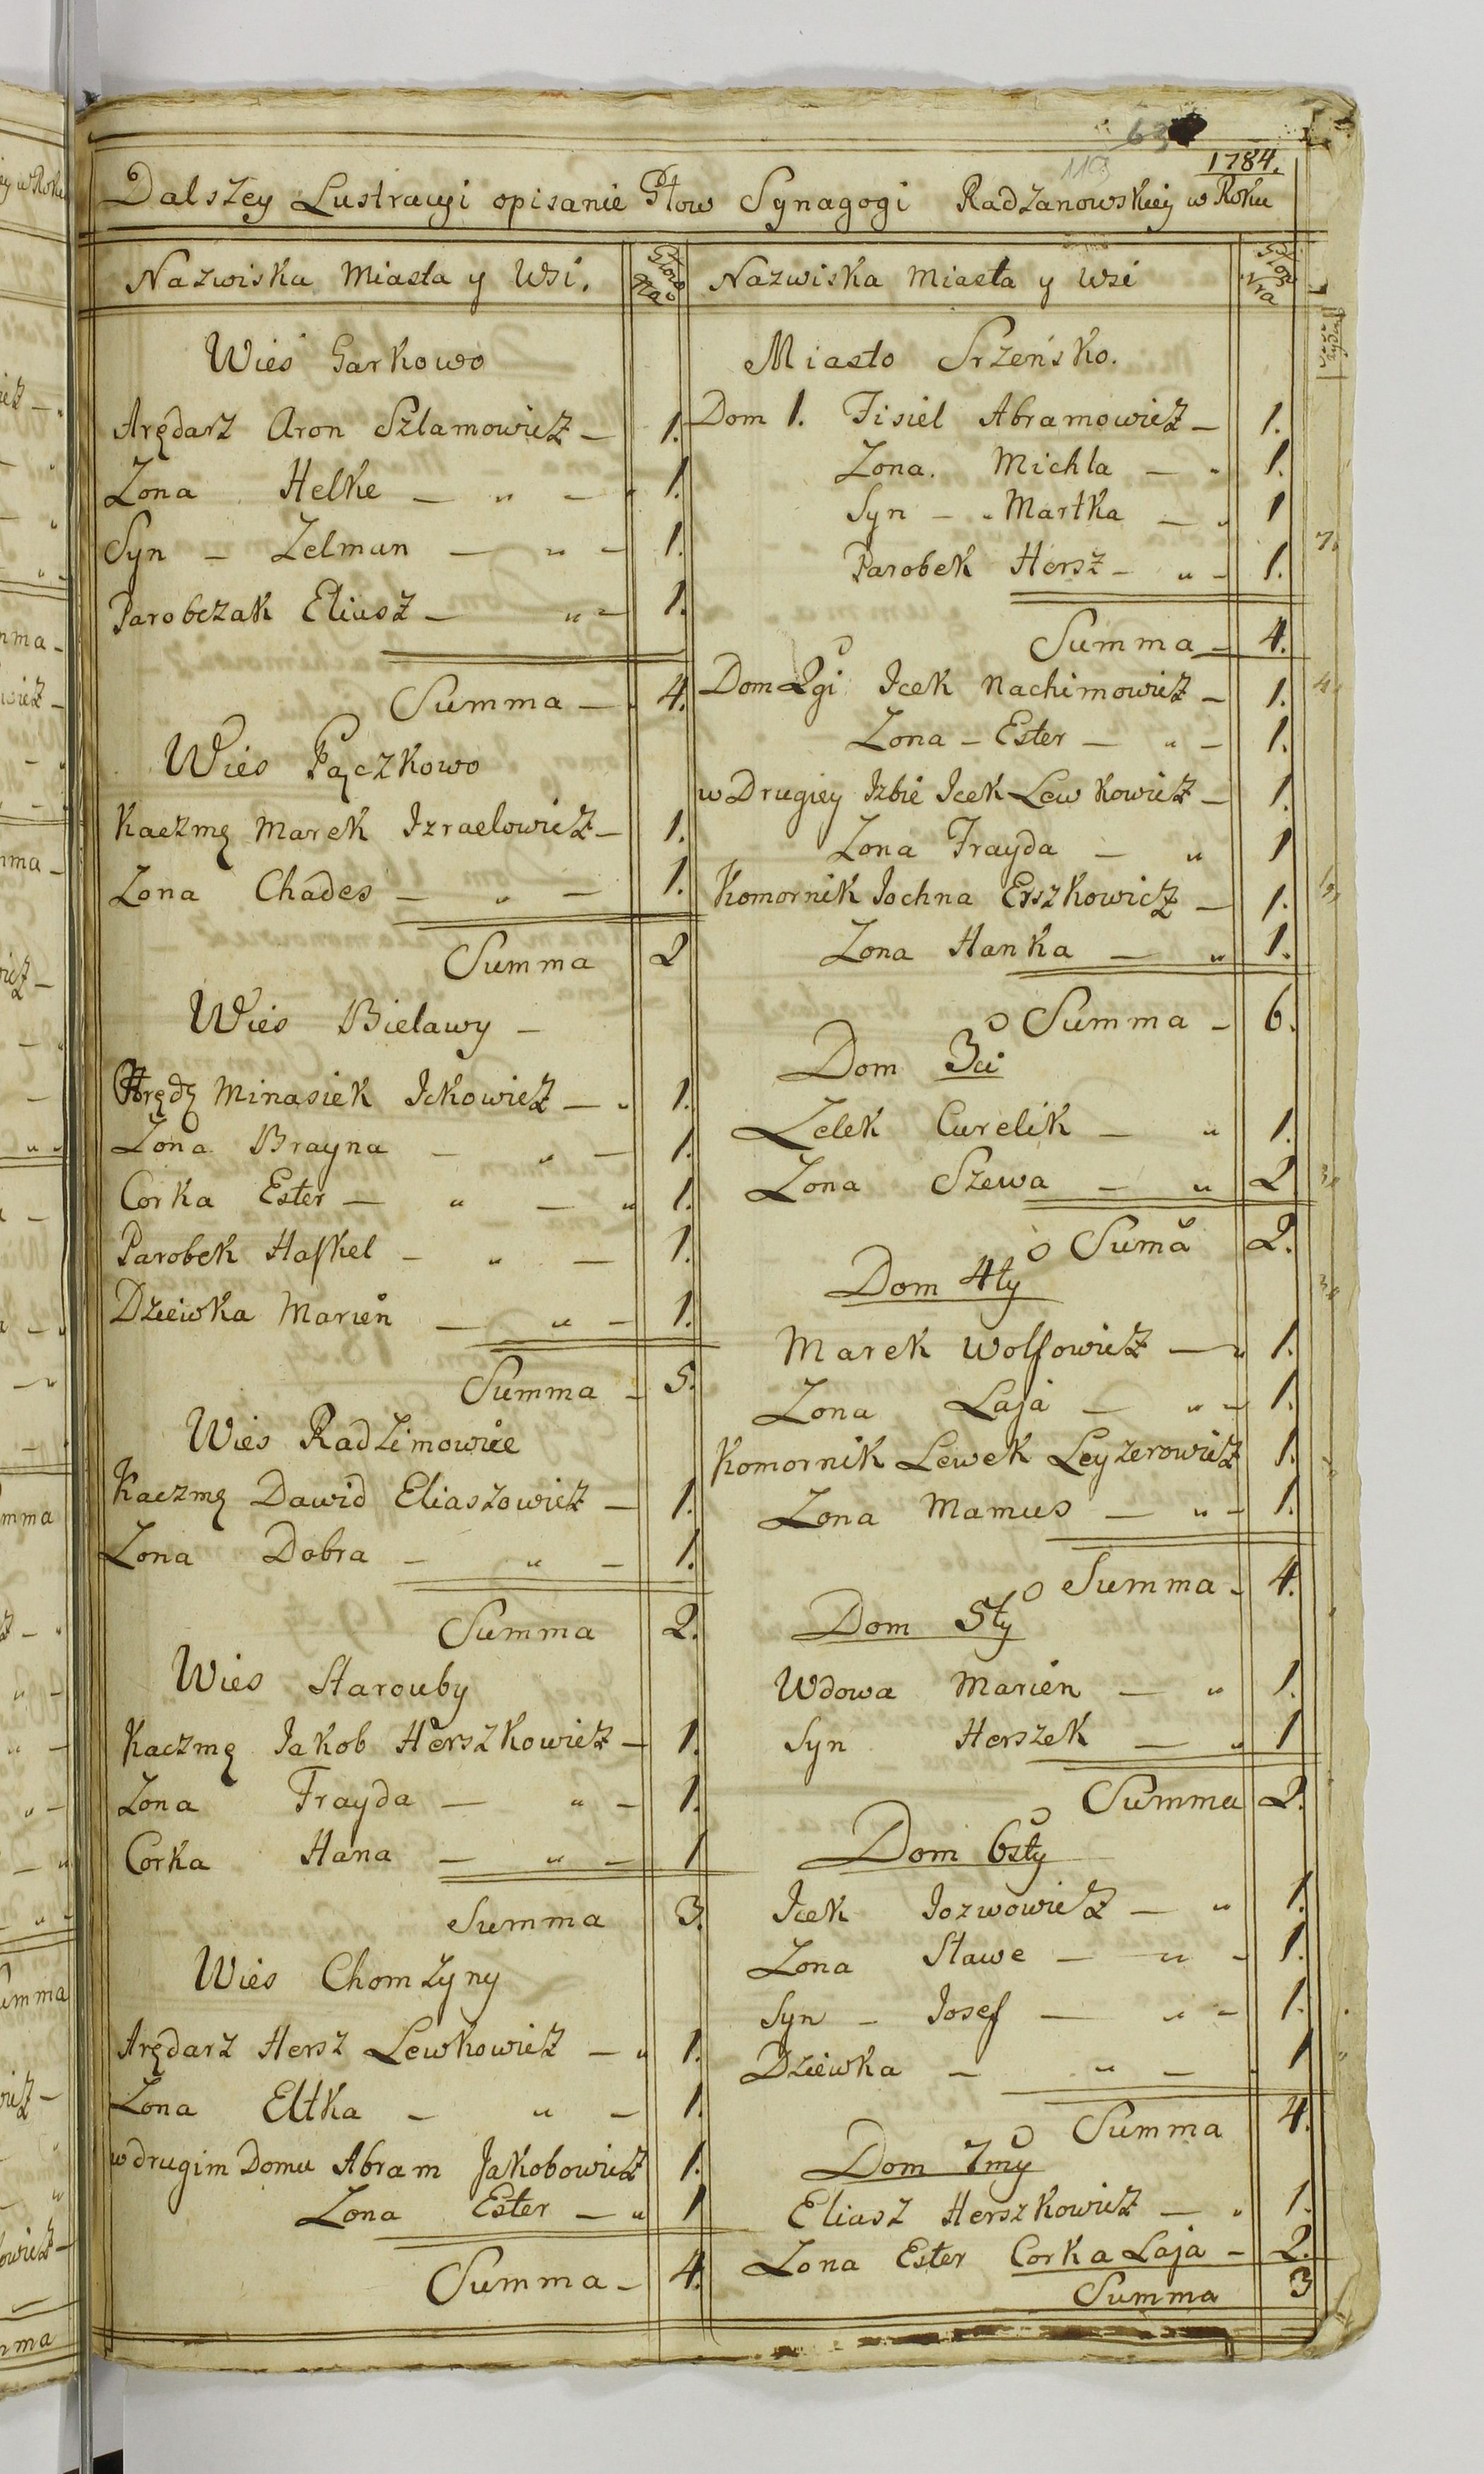 63
113
1784.
Dalszey Lustracyi opisanie Głow Synagogi Radzanowskiey w Roku
Nazwiska Miasta y Wsi. Głow Nro
Wieś Garkowo
Arędarz Aron Szlamowicz — 1.
Zona Helke — „ — 1.
Syn — Zelman — „ — 1.
Parobczak Eliasz — „ — 1.
Summa — 4.
Wieś Pączkowo
Kaczmę Marek Izraelowicz — 1.
Zona Chades — „ — 1.
Summa 2
Wieś Bielawy —
Arędz Minasiek Ickowicz — „ 1.
Zona Brayna — „ — 1.
Corka Ester — „ — „ 1.
Parobek Haskel — „ — 1.
Dziewka Marien — „ — 1.
Summa — 5.
Wieś Radzimowice
Kaczmę Dawid Eliaszowicz — 1.
Zona Dobra — „ — 1.
Summa 2.
Wieś Starouby
Kaczmę Jakob Herszkowicz — 1.
Zona Frayda — „ — 1.
Corka Hana — „ — 1
Summa 3.
Wieś Chomzyny
Arędarz Hersz Lewkowicz — „ 1.
Zona Eltka — „ — 1.
w drugim Domu Abram Jakobowicz 1.
Zona Ester — „ 1
Summa — 4.
Nazwiska Miasta y Wsi Głow Nra
Miasto Srzeńsko.
Dom 1. Fisiel Abramowicz — 1.
Zona. Michla — „ 1.
Syn — „ Martka — „ 1
Parobek Hersz — „ — 1.
Summa — 4.
Dom 2gi Icek Nachimowicz — 1.
Zona — Ester — „ — 1.
w Drugiey Izbie Icek Lewkowicz — 1.
Zona Frayda — „ 1
Komornik Jochna Erszkowicz — 1.
Zona Hanka — „ 1.
Summa — 6.
Dom 3ci
Zelek Curelik — „ 1.
Zona Szewa — „ 2
Suma 2.
Dom 4ty
Marek Wolfowicz — „ 1.
Zona Laja — „ — 1.
Komornik Lewek Leyzerowicz 1.
Zona Mamus — „ — 1.
Summa — 4.
Dom 5ty
Wdowa Marien — „ 1.
Syn Herszek — „ 1
Summa 2.
Dom 6sty
Icek Jozwowicz — „ 1.
Zona Sławe — „ — 1.
Syn — Josef — „ — 1.
Dziewka — „ — 1
Summa 4.
Dom 7my
Eliasz Herszkowicz — „ 1.
Zona Ester Corka Laja — 2.
Summa 3